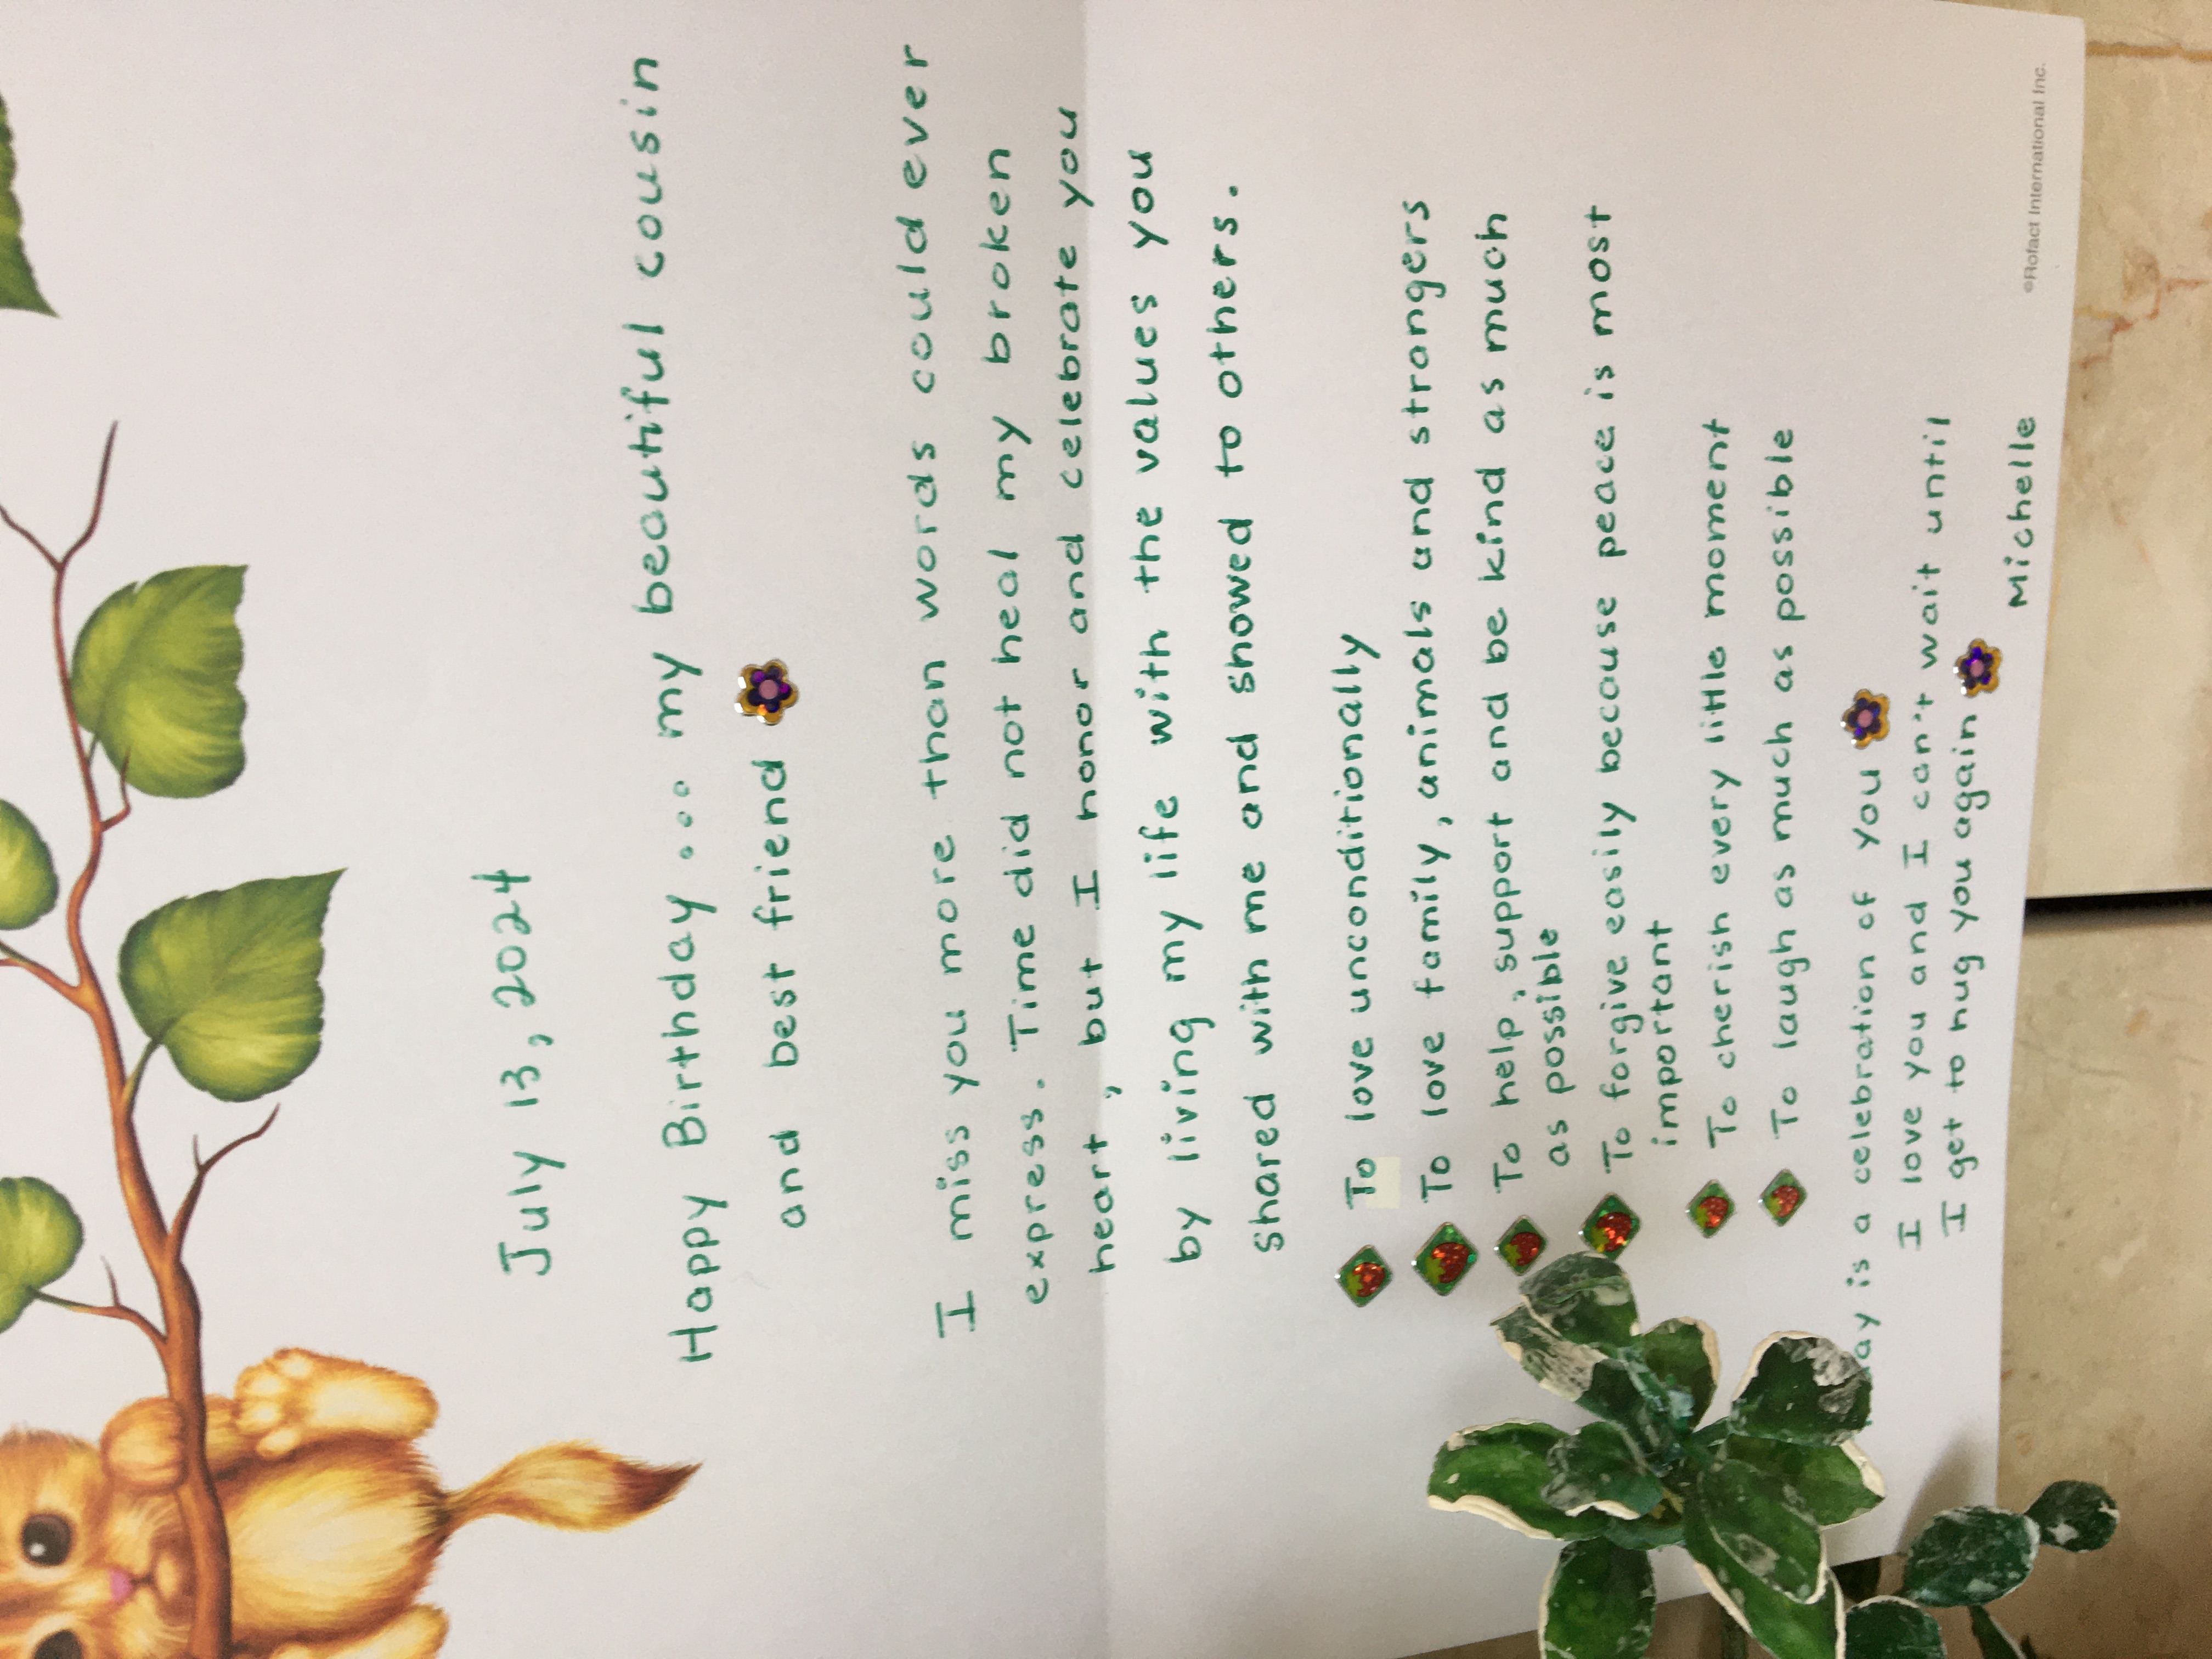 July 13, 2024
Happy Birthday ... my beautiful cousin
and best friend
I miss you more than words could ever
express. Time did not heal my broken
heart, but I honor and celebrate you
by living my life with the values you
shared with me and showed to others.
To love unconditionally
To love family, animals and strangers
To help, support and be kind as much
as possible
To forgive easily because peace is most
important
To cherish every little moment
To laugh as much as possible
is a celebration of you
I love you and I can't wait until
I get to hug you again
Michelle
©Rofact International Inc.